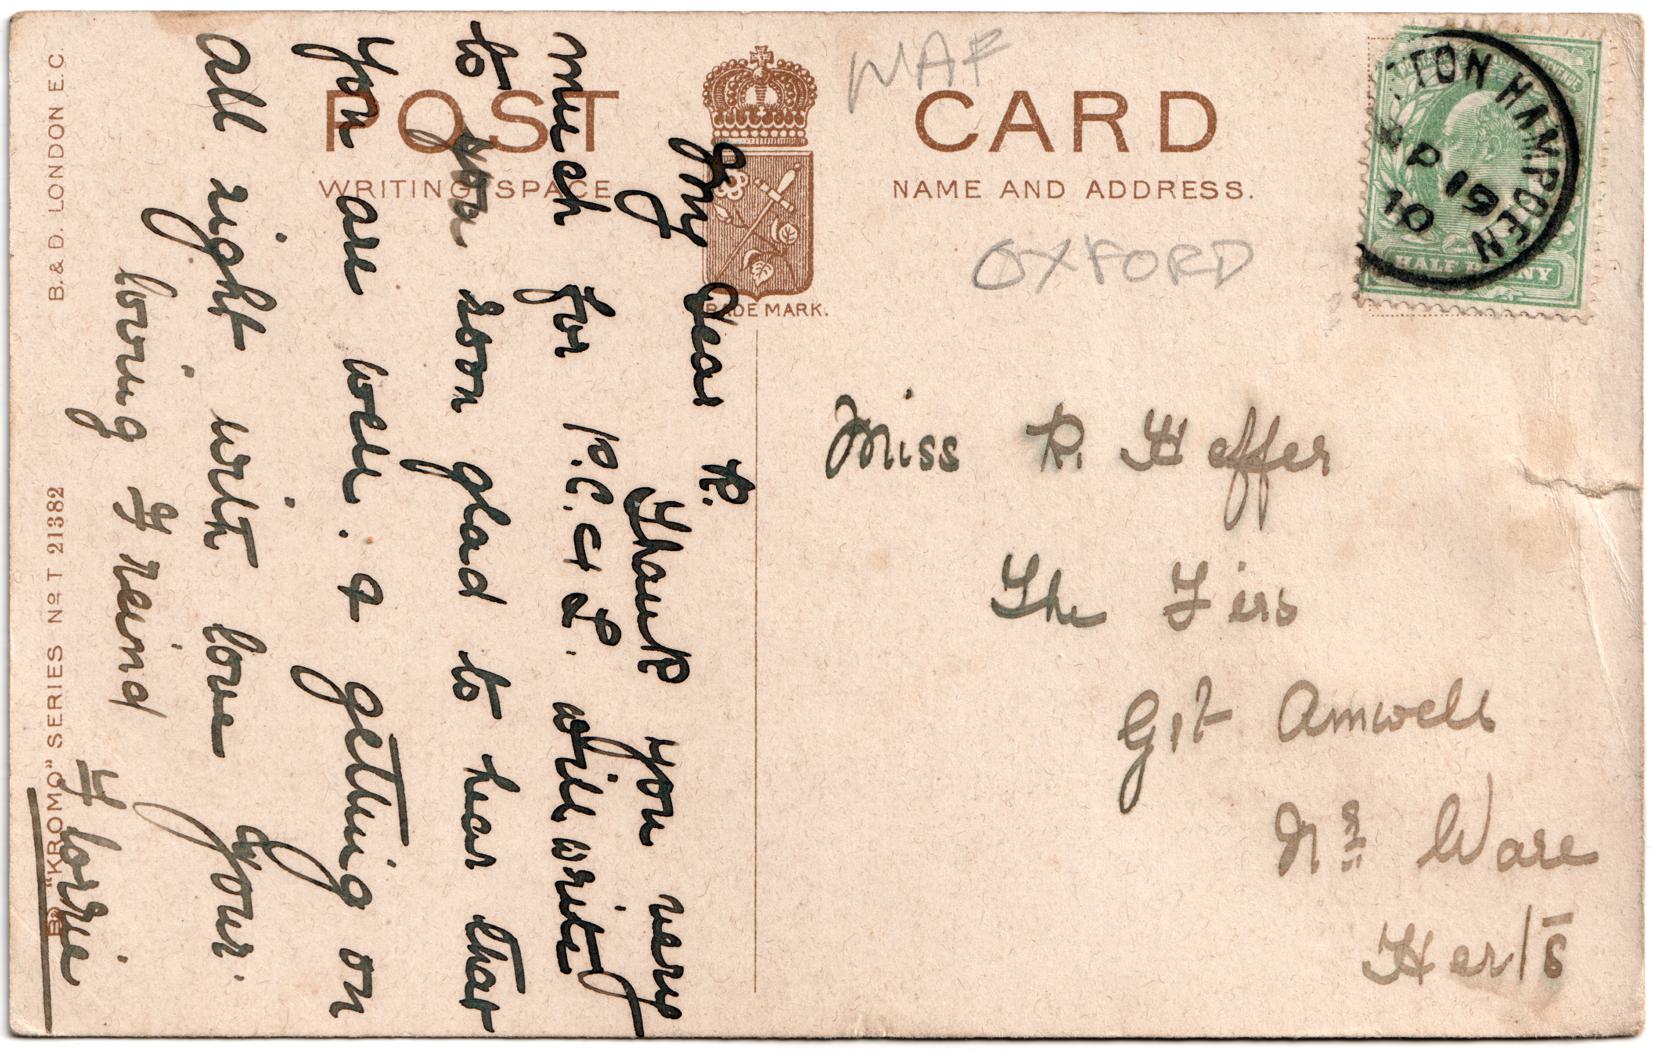 POST CARD
WRITING SPACE
NAME AND ADDRESS.
TRADE MARK.
WAF
OXFORD
TON HAMPDEN
P 19
10
HALF PENNY
My Dear R.
Thank you very
much for P.C. & L. will write
to you soon glad to hear that
you are well. & getting on
all right with love your
loving Freind
Florrie
Miss R. Heffer
The Firs
Gt Amwell
Nr Ware
Herts
B. & D. LONDON E.C.
"KROMO" SERIES No T 21382